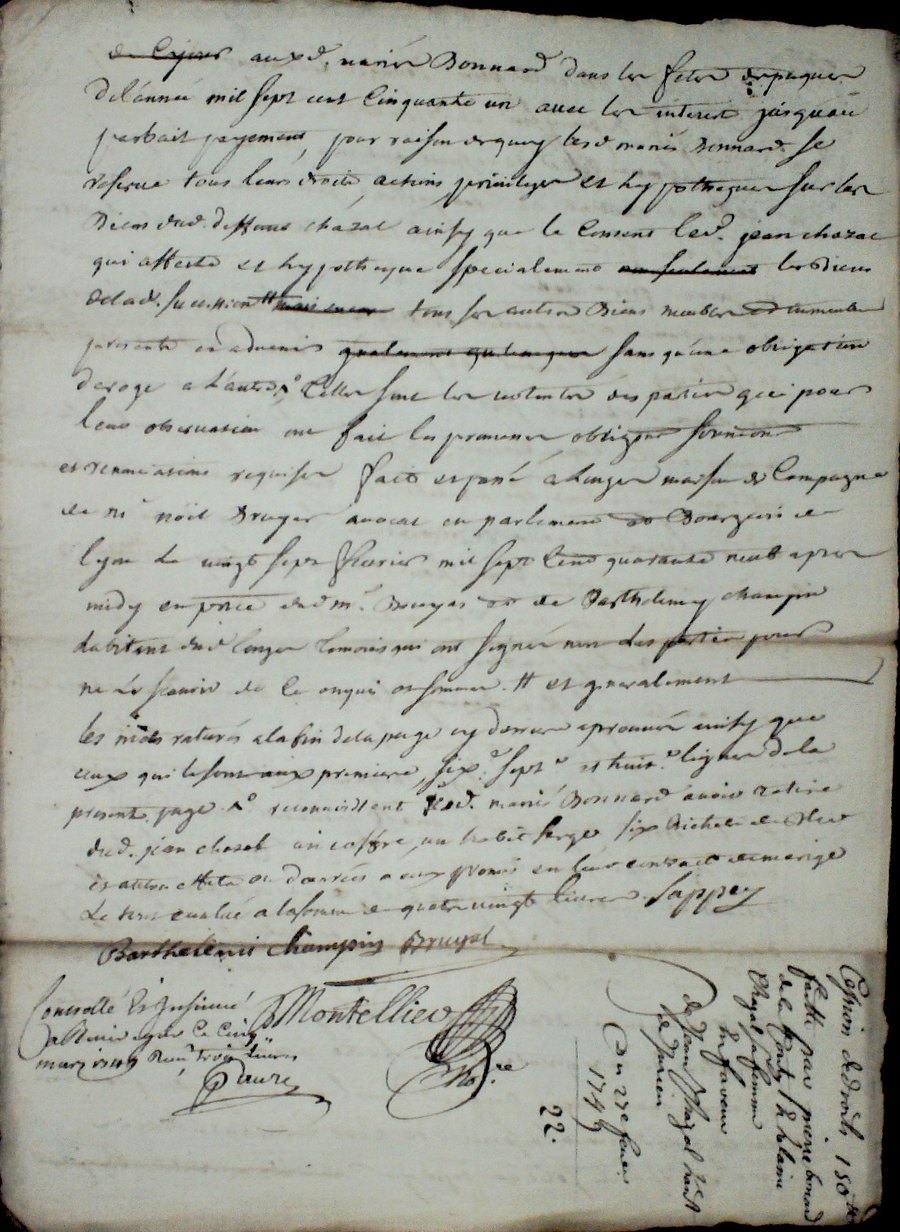 auxd. mariés Bonnard dans les fetes de paques
de l'année mil sept cent Cinquante un avec les interest jusquau
parfait payement, pour raison de quoy lesd mariés Bonnard se
reserve tous leurs droits actions privileges et hypotheques sur les
Biens dud. deffunt chazal ainsy que le Consent led. jean chazal
qui affecte et hypotheque specialement les Biens
de lad. succession # tous ses autres Biens meubles et immeubles
presents et advenir sans qu'une obligation
deroge a l'autre, Celles sont les volontés des parties qui pour
leur observation ont fait les promesses obligons soumions
et renonciations requises fait et passé a Longes maison de Campagne
de Mr noël Bruyas avocat en parlement et Bourgeois de
lyon Le vingt sept fevrier mil sept Cent quarante neuf apres
midy en pnce dud mr. Bruyas et de Barthelemy champin
habitant dud Longes temoins qui ont signés non les parties pour
ne Le scavoir de ce enquis et sommes. # et generalement
les mots raturés a la fin de la page cy derriere aprouvés ainsy que
ceux qui le sont aux premiere, six. sept. et huit. lignes de la
presente page reconnoissent lesd. mariés Bonnard avoir retiré
dud. jean chazal un coffre, un habit serge six Bichets de bled
et autres effets ou danrées a eux promis en leur contract de mariage
Le tout evalué a la somme de quatre vingt livres Sappey
Barthelemi Champin Bruyas
Montellier
Nore.
Controllé Et Insinué
ce Cinq
mars 1749 Reçu trois livres
Faure
Cession de droits 180 tt
faitte par pierre bonard
de la
Chazal sa femme
En faveur
de Jean Chazal
Du 27e fevrier
1749
22.